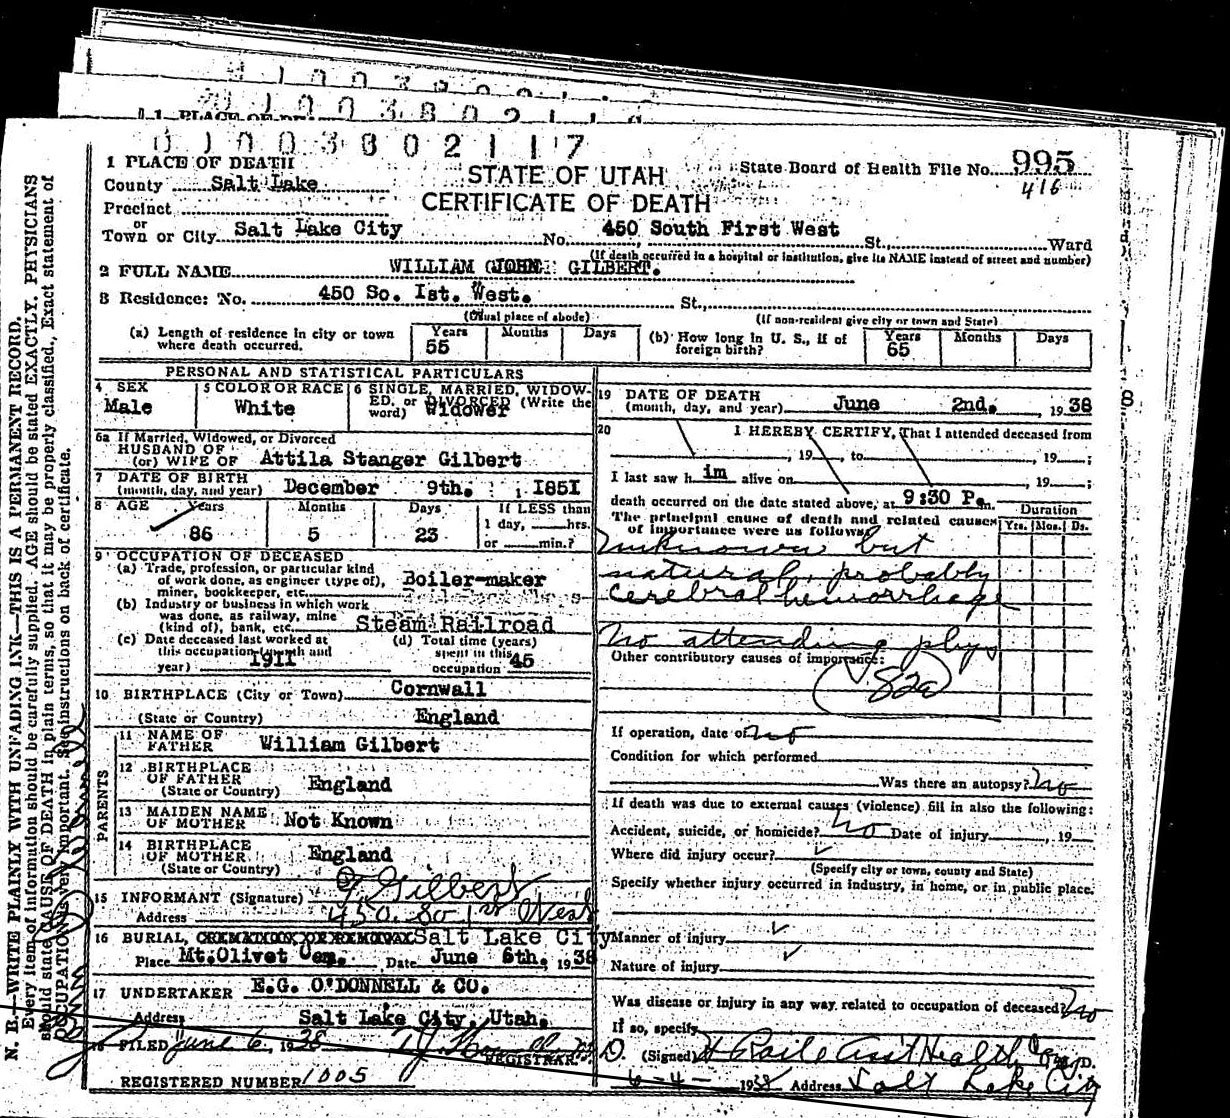 0 1 0 0 3 8 0 2 1 1 7
1 PLACE OF DEATH
County Salt Lake
Precinct
or
Town or City Salt Lake City
STATE OF UTAH
CERTIFICATE OF DEATH
State Board of Health File No. 995
416
No. 450 South First West St., Ward
(If death occurred in a hospital or institution, give its NAME instead of street and number)
2 FULL NAME WILLIAM (JOHN) GILBERT.
3 Residence: No. 450 So. Ist. West. St.,
(Usual place of abode)
(If non-resident give city or town and State)
(a) Length of residence in city or town where death occurred.
Years 55 Months Days
(b) How long in U. S., if of foreign birth?
Years 65 Months Days
PERSONAL AND STATISTICAL PARTICULARS
4 SEX
Male
5 COLOR OR RACE
White
6 SINGLE, MARRIED, WIDOW-
ED, or DIVORCED (Write the
word) Widower
6a If Married, Widowed, or Divorced
HUSBAND OF
(or) WIFE OF Attila Stanger Gilbert
7 DATE OF BIRTH
(month, day, and year) December 9th. I85I
8 AGE Years Months Days If LESS than
1 day, hrs.
86 5 23 or min.?
9 OCCUPATION OF DECEASED
(a) Trade, profession, or particular kind
of work done, as engineer (type of),
miner, bookkeeper, etc. Boiler-maker
(b) Industry or business in which work
was done, as railway, mine
(kind of), bank, etc. Steam Railroad
(c) Date deceased last worked at
this occupation (month and
year) 1911
(d) Total time (years)
spent in this
occupation 45
10 BIRTHPLACE (City or Town) Cornwall
(State or Country) England
PARENTS
11 NAME OF
FATHER William Gilbert
12 BIRTHPLACE
OF FATHER
(State or Country) England
13 MAIDEN NAME
OF MOTHER Not Known
14 BIRTHPLACE
OF MOTHER
(State or Country) England
15 INFORMANT (Signature) Gilbert
Address 450. So 1st West
16 BURIAL, CREMATION OR REMOVAL Salt Lake City
Place Mt.Olivet Cem. Date June 6th. 1938
17 UNDERTAKER E.G. O'DONNELL & CO.
Address Salt Lake City, Utah.
18 FILED June 6, 1938
REGISTRAR
REGISTERED NUMBER 1005
19 DATE OF DEATH
(month, day, and year) June 2nd. 1938
20 I HEREBY CERTIFY, That I attended deceased from
, 19 , to , 19 ;
I last saw h im alive on , 19 ;
death occurred on the date stated above, at 9:30 P. m.
The principal cause of death and related causes
of importance were as follows:
Duration
Yrs. Mos. Ds.
unknown but
natural, probably
cerebral hemorrhage
No attending phys
Other contributory causes of importance:
82a
If operation, date of no
Condition for which performed
Was there an autopsy? No
If death was due to external causes (violence) fill in also the following:
Accident, suicide, or homicide? No Date of injury , 19
Where did injury occur?
(Specify city or town, county and State)
Specify whether injury occurred in industry, in home, or in public place.
Manner of injury
Nature of injury
Was disease or injury in any way related to occupation of deceased? No
If so, specify
(Signed) Ass't Health Com M.D.
6-4- 1938 Address Salt Lake City
N. B.—WRITE PLAINLY WITH UNFADING INK—THIS IS A PERMANENT RECORD.
Every item of information should be carefully supplied. AGE should be stated EXACTLY. PHYSICIANS
should state CAUSE OF DEATH in plain terms, so that it may be properly classified. Exact statement of
OCCUPATION is very important. See instructions on back of certificate.